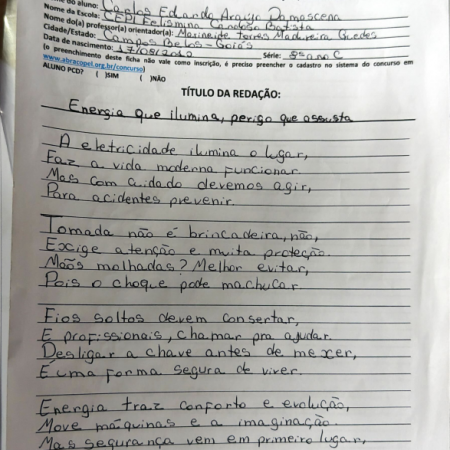 Nome do aluno: Carlos Eduardo Araújo Damascena
Nome da Escola: CEPI Felismina Cardoso Batista
Nome do(a) professor(a) orientador(a): Marineide Torres Madureira Guedes
Cidade/Estado: Campos Belos - Goiás
Data de nascimento: 17/05/2012 Série: 8º ano C
(o preenchimento desta ficha não vale como inscrição, é preciso preencher o cadastro no sistema do concurso em
www.abracopel.org.br/concurso)
ALUNO PCD? ( )SIM ( )NÃO
TÍTULO DA REDAÇÃO:
Energia que ilumina, perigo que assusta
A eletricidade ilumina o lugar,
Faz a vida moderna funcionar.
Mas com cuidado devemos agir,
Para acidentes prevenir.
Tomada não é brincadeira, não,
Exige atenção e muita proteção.
Mãos molhadas? Melhor evitar,
Pois o choque pode machucar.
Fios soltos devem consertar,
E profissionais, chamar pra ajudar.
Desligar a chave antes de mexer,
É uma forma segura de viver.
Energia traz conforto e evolução,
Move máquinas e a imaginação.
Mas segurança vem em primeiro lugar,